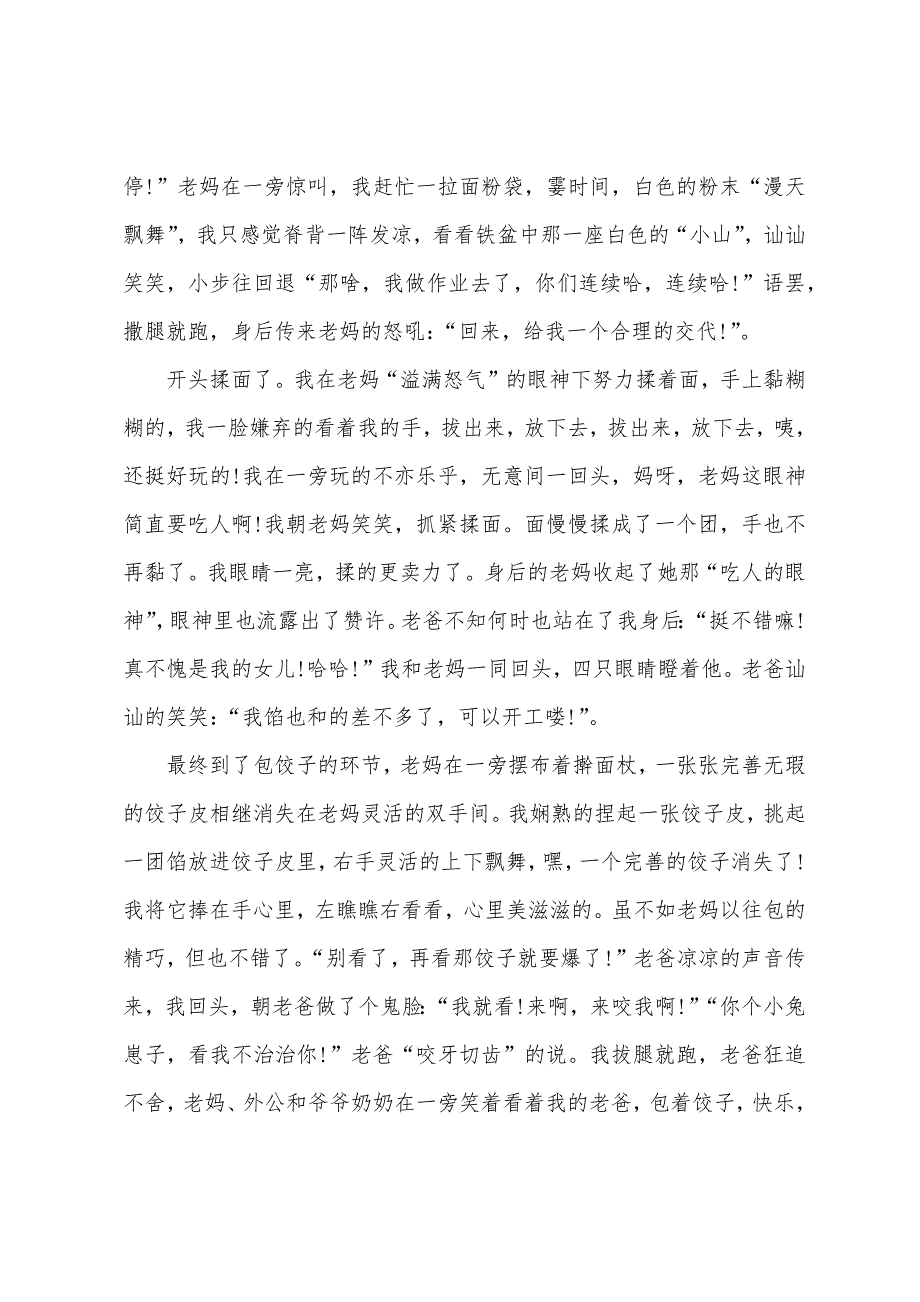 停!”老妈在一旁惊叫，我赶忙一拉面粉袋，霎时间，白色的粉末“漫天
飘舞”，我只感觉脊背一阵发凉，看看铁盆中那一座白色的“小山”，讪讪
笑笑，小步往回退“那啥，我做作业去了，你们连续哈，连续哈!”语罢，
撒腿就跑，身后传来老妈的怒吼：“回来，给我一个合理的交代!”。
开头揉面了。我在老妈“溢满怒气”的眼神下努力揉着面，手上黏糊
糊的，我一脸嫌弃的看着我的手，拔出来，放下去，拔出来，放下去，咦，
还挺好玩的!我在一旁玩的不亦乐乎，无意间一回头，妈呀，老妈这眼神
简直要吃人啊!我朝老妈笑笑，抓紧揉面。面慢慢揉成了一个团，手也不
再黏了。我眼睛一亮，揉的更卖力了。身后的老妈收起了她那“吃人的眼
神”，眼神里也流露出了赞许。老爸不知何时也站在了我身后：“挺不错嘛!
真不愧是我的女儿!哈哈!”我和老妈一同回头，四只眼睛瞪着他。老爸讪
讪的笑笑：“我馅也和的差不多了，可以开工喽!”。
最终到了包饺子的环节，老妈在一旁摆布着擀面杖，一张张完善无瑕
的饺子皮相继消失在老妈灵活的双手间。我娴熟的捏起一张饺子皮，挑起
一团馅放进饺子皮里，右手灵活的上下飘舞，嘿，一个完善的饺子消失了!
我将它捧在手心里，左瞧瞧右看看，心里美滋滋的。虽不如老妈以往包的
精巧，但也不错了。“别看了，再看那饺子就要爆了!”老爸凉凉的声音传
来，我回头，朝老爸做了个鬼脸：“我就看!来啊，来咬我啊!”“你个小兔
崽子，看我不治治你!”老爸“咬牙切齿”的说。我拔腿就跑，老爸狂追
不舍，老妈、外公和爷爷奶奶在一旁笑着看着我的老爸，包着饺子，快乐，